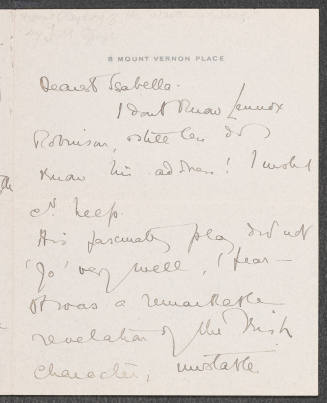 8 MOUNT VERNON PLACE
Dearest Isabella.
I don't know Lennox
Robinson, still less do I
know his address! I wish I
cd. help.
His fascinating play did not
'go' very well, I fear—
It was a remarkable
revelation of the Irish
character, unstable